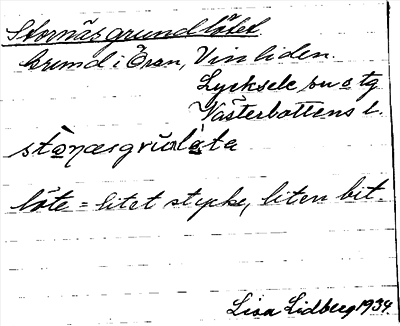 Stornäsgrundlötet
grund i Öran, Vinliden.
Lycksele sn o tg
Västerbottens l.
löte = litet stycke, liten bit.
Lisa Lidberg 1934.